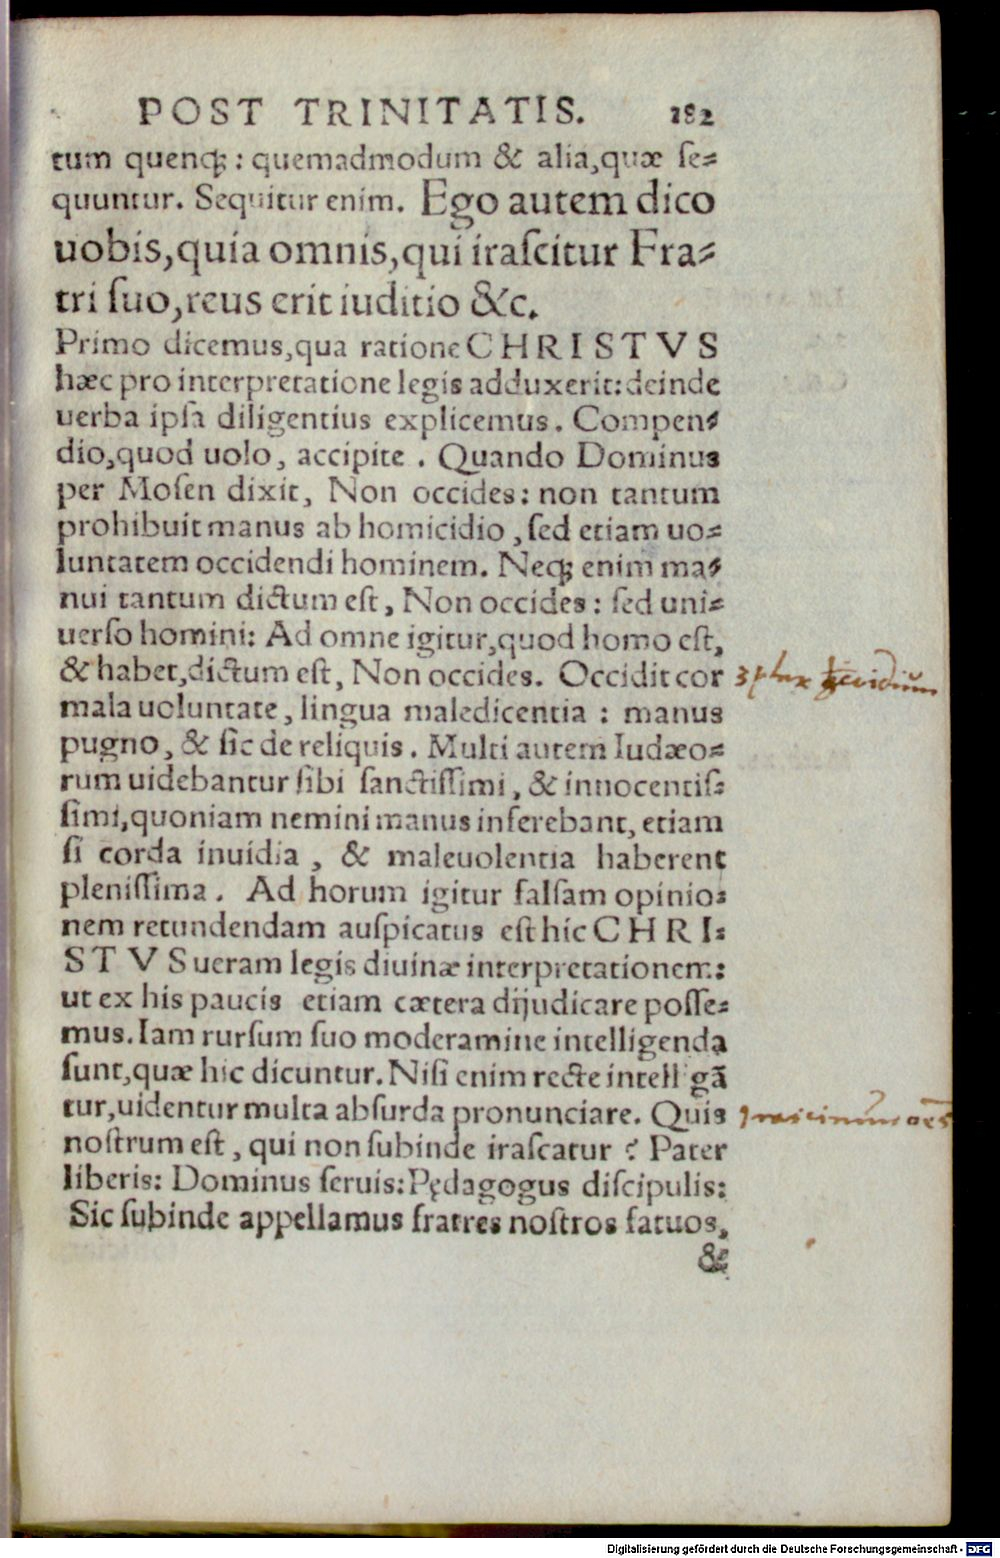 POST TRINITATIS. 182
tum quenq;: quemadmodum & alia, quæ se-
quuntur. Sequitur enim. Ego autem dico
uobis, quia omnis, qui irascitur Fra-
tri suo, reus erit iuditio &c.
Primo dicemus, qua ratione CHRISTVS
hæc pro interpretatione legis adduxerit: deinde
uerba ipsa diligentius explicemus. Compen-
dio, quod uolo, accipite. Quando Dominus
per Mosen dixit, Non occides: non tantum
prohibuit manus ab homicidio, sed etiam uo-
luntatem occidendi hominem. Neq; enim ma-
nui tantum dictum est, Non occides: sed uni-
uerso homini: Ad omne igitur, quod homo est,
& habet, dictum est, Non occides. Occidit cor
mala uoluntate, lingua maledicentia: manus
pugno, & sic de reliquis. Multi autem Iudæo-
rum uidebantur sibi sanctissimi, & innocentis-
simi, quoniam nemini manus inferebant, etiam
si corda inuidia, & maleuolentia haberent
plenissima. Ad horum igitur falsam opinio-
nem retundendam auspicatus est hic CHRI-
STVS ueram legis diuinæ interpretationem:
ut ex his paucis etiam cætera dijudicare posse-
mus. Iam rursum suo moderamine intelligenda
sunt, quæ hic dicuntur. Nisi enim recte intelligā
tur, uidentur multa absurda pronunciare. Quis
nostrum est, qui non subinde irascatur? Pater
liberis: Dominus seruis: Pędagogus discipulis:
Sic subinde appellamus fratres nostros fatuos,
&
Digitalisierung gefördert durch die Deutsche Forschungsgemeinschaft - DFG